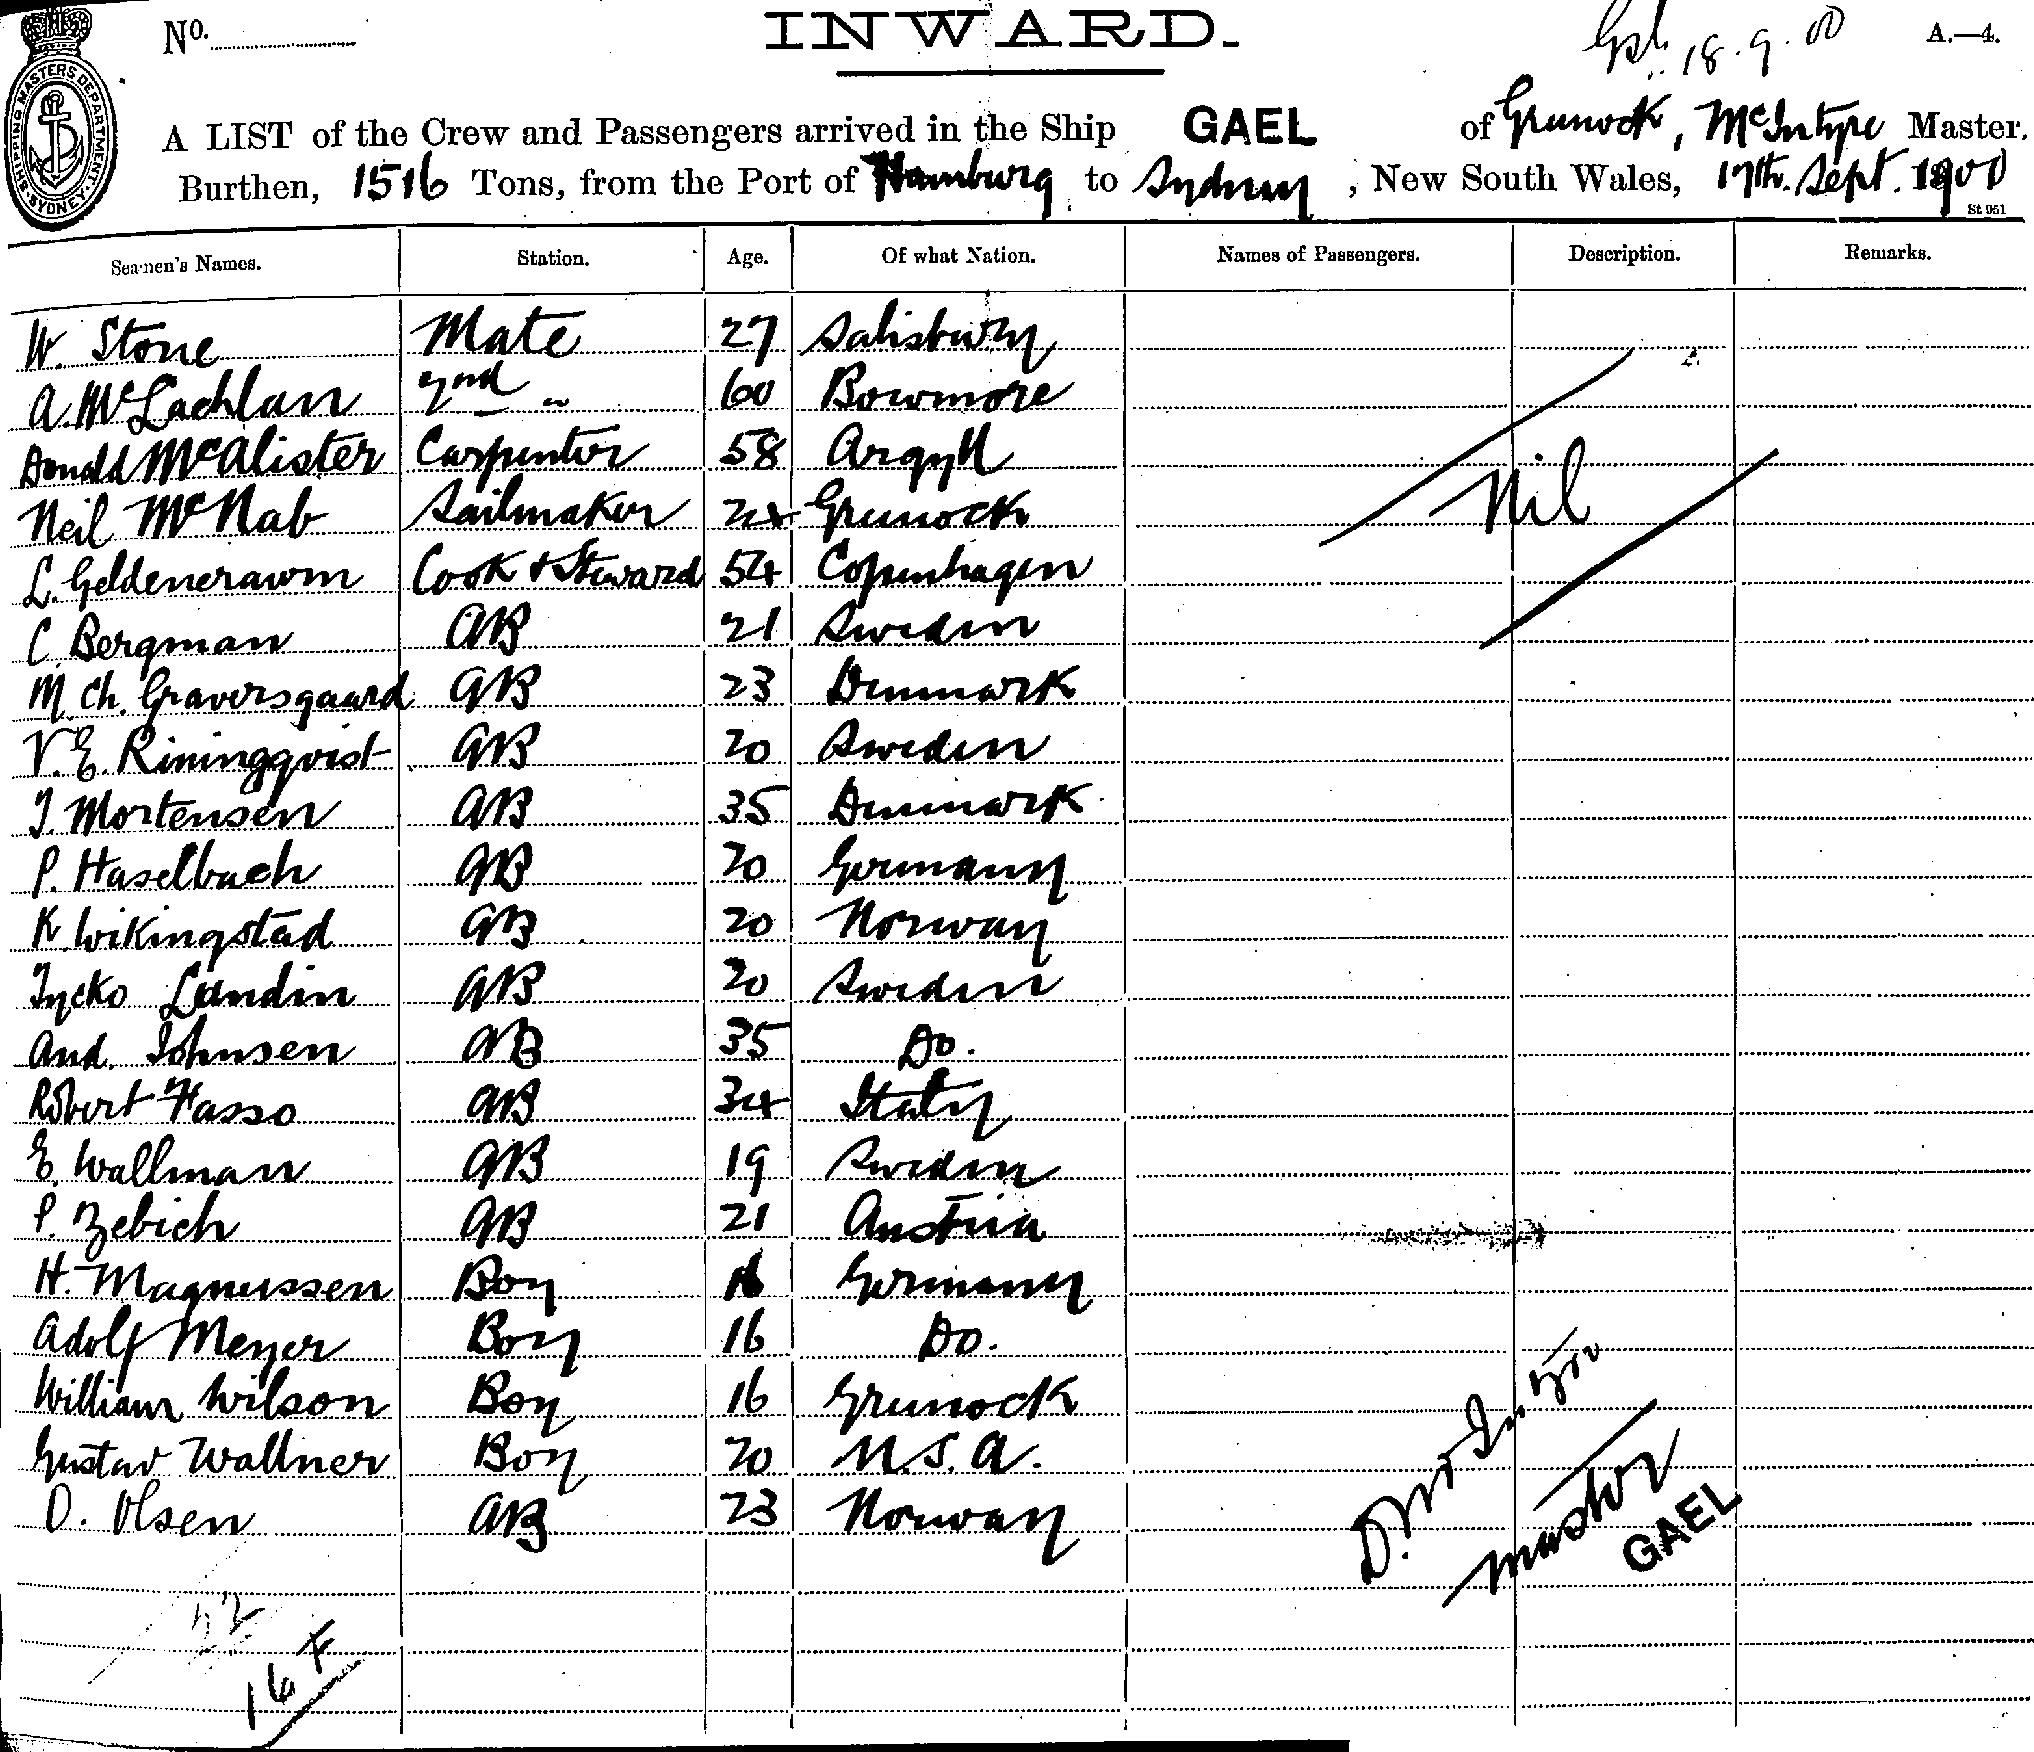 No.
INWARD.
18.9.00
A.—4.
SHIPPING MASTERS DEPARTMENT SYDNEY
A LIST of the Crew and Passengers arrived in the Ship GAEL of Greenock, McIntyre Master.
Burthen, 1516 Tons, from the Port of Hamburg to Sydney, New South Wales, 17th. Sept. 1900
St 951
Seamen's Names. Station. Age. Of what Nation. Names of Passengers. Description. Remarks.
W. Stone Mate 27 Salisbury
A. McLachlan 2nd " 60 Bowmore
Donald McAlister Carpenter 58 Argyll
Neil McNab Sailmaker 24 Greenock Nil
L. Geldenerawm Cook & Steward 54 Copenhagen
C. Bergman AB 21 Sweden
M. Ch. Graversgaard AB 23 Denmark
V. E. Riningqvist AB 20 Sweden
J. Mortensen AB 35 Denmark
P. Haselbach AB 20 Germany
K. Wikingstad AB 20 Norway
Tycko Lundin AB 20 Sweden
And. Johnsen AB 35 Do.
Robert Fasso AB 34 Italy
E. Wallman AB 19 Sweden
P. Zebich AB 21 Austria
H. Magnussen Boy 16 Germany
Adolf Meyer Boy 16 Do.
William Wilson Boy 16 Greenock
Gustav Wallner Boy 20 U.S.A.
O. Olsen AB 23 Norway
D. McIntyre
Master
GAEL
22
16 F